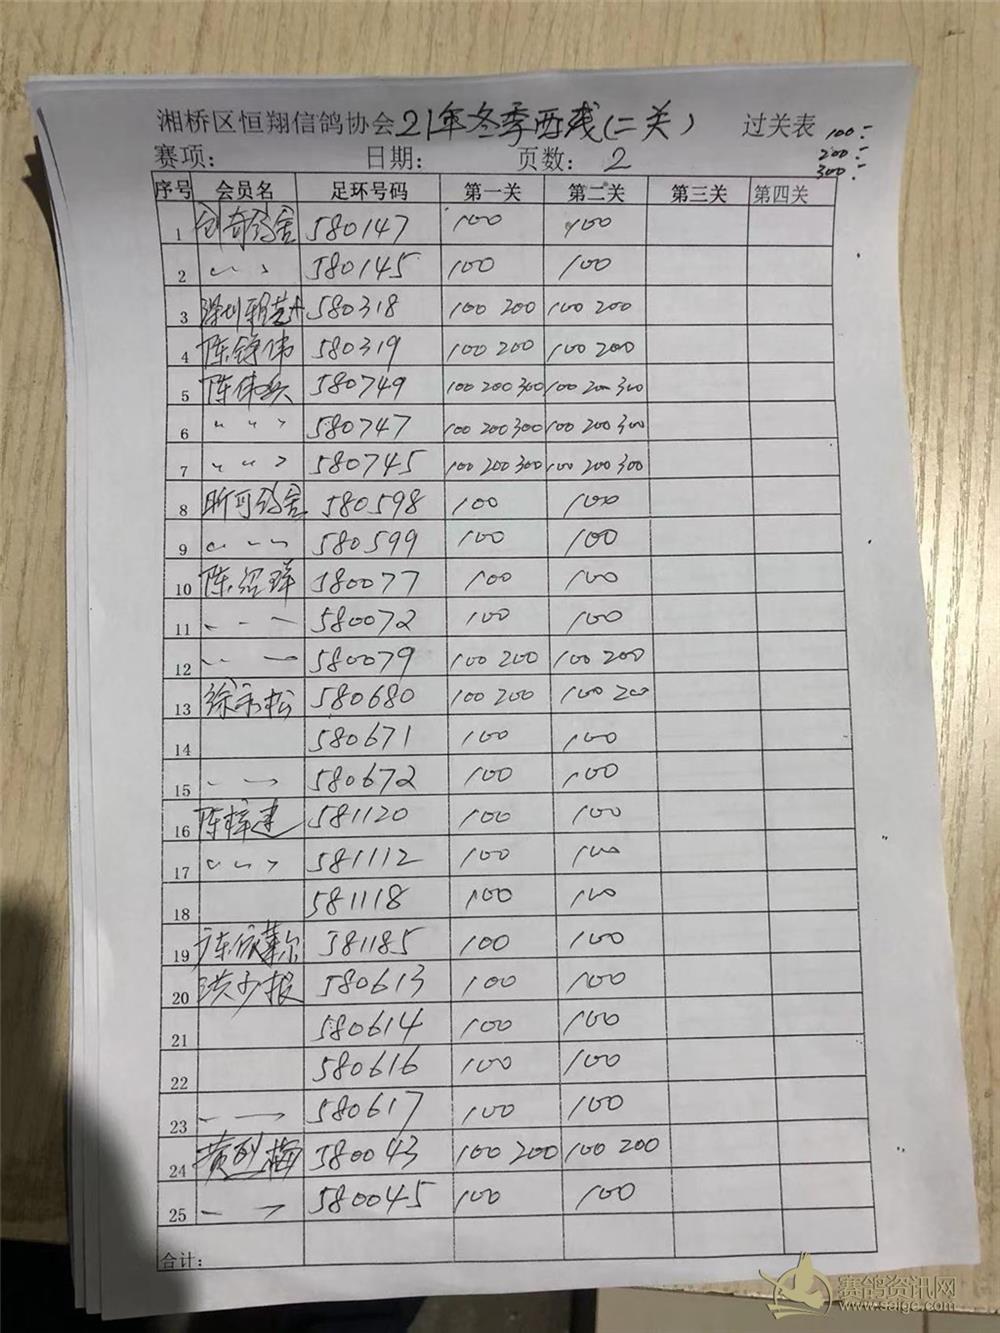 湘桥区恒翔信鸽协会21年冬季西线(二关) 过关表 100:
200:
赛项: 日期: 页数: 2 300:
序号 会员名 足环号码 第一关 第二关 第三关 第四关
1 580147 100 100
2 〃 580145 100 100
3 580318 100 200 100 200
4 陈铮伟 580319 100 200 100 200
5 陈伟 580749 100 200 300 100 200 300
6 〃 580747 100 200 300 100 200 300
7 〃 580745 100 200 300 100 200 300
8 昕可鸽舍 580598 100 100
9 〃 580599 100 100
10 陈绍 580077 100 100
11 〃 580072 100 100
12 〃 580079 100 200 100 200
13 徐永松 580680 100 200 100 200
14 580671 100 100
15 〃 580672 100 100
16 陈梓建 581120 100 100
17 〃 581112 100 100
18 581118 100 100
19 581185 100 100
20 洪少 580613 100 100
21 580614 100 100
22 580616 100 100
23 〃 580617 100 100
24 黄烈梅 580043 100 200 100 200
25 〃 580045 100 100
合计:
赛鸽资讯网
www.saige.com